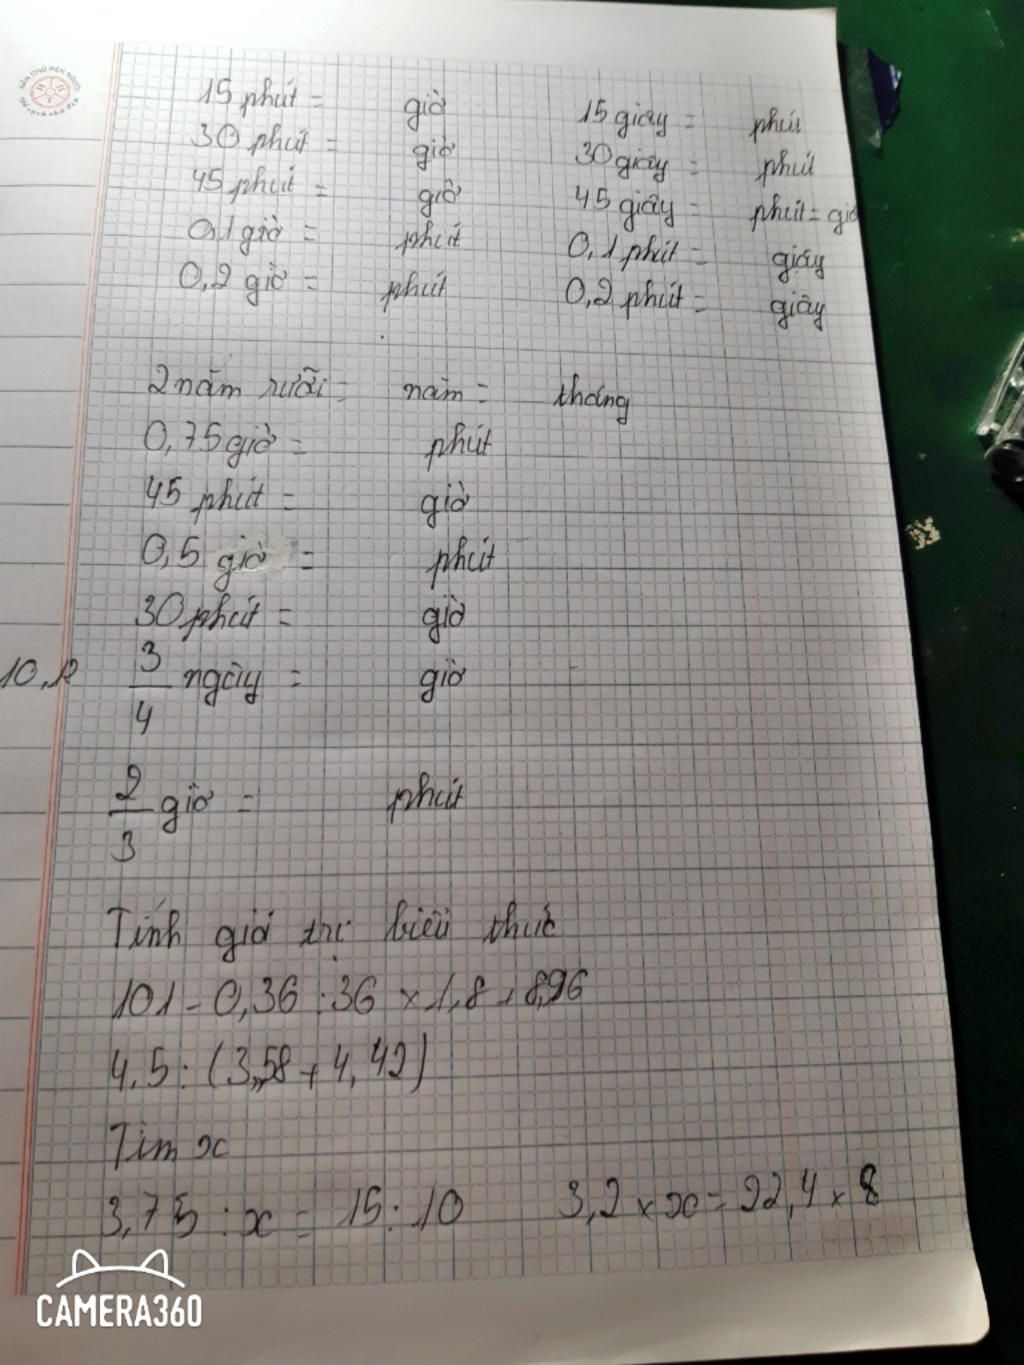 15 phút = giờ 15 giây = phút
30 phút = giờ 30 giây = phút
45 phút = giờ 45 giây = phút = giờ
0,1 giờ = phút 0,1 phút = giây
0,2 giờ = phút 0,2 phút = giây
2 năm rưỡi = năm = tháng
0,75 giờ = phút
45 phút = giờ
0,5 giờ = phút
30 phút = giờ
10,2
3/4 ngày = giờ
2/3 giờ = phút
Tính giá trị biểu thức
101 - 0,36 : 36 × 1,8 + 8,96
4,5 : (3,58 + 4,42)
Tìm x
3,75 : x = 15 : 10 3,2 × x = 22,4 × 8
CAMERA360